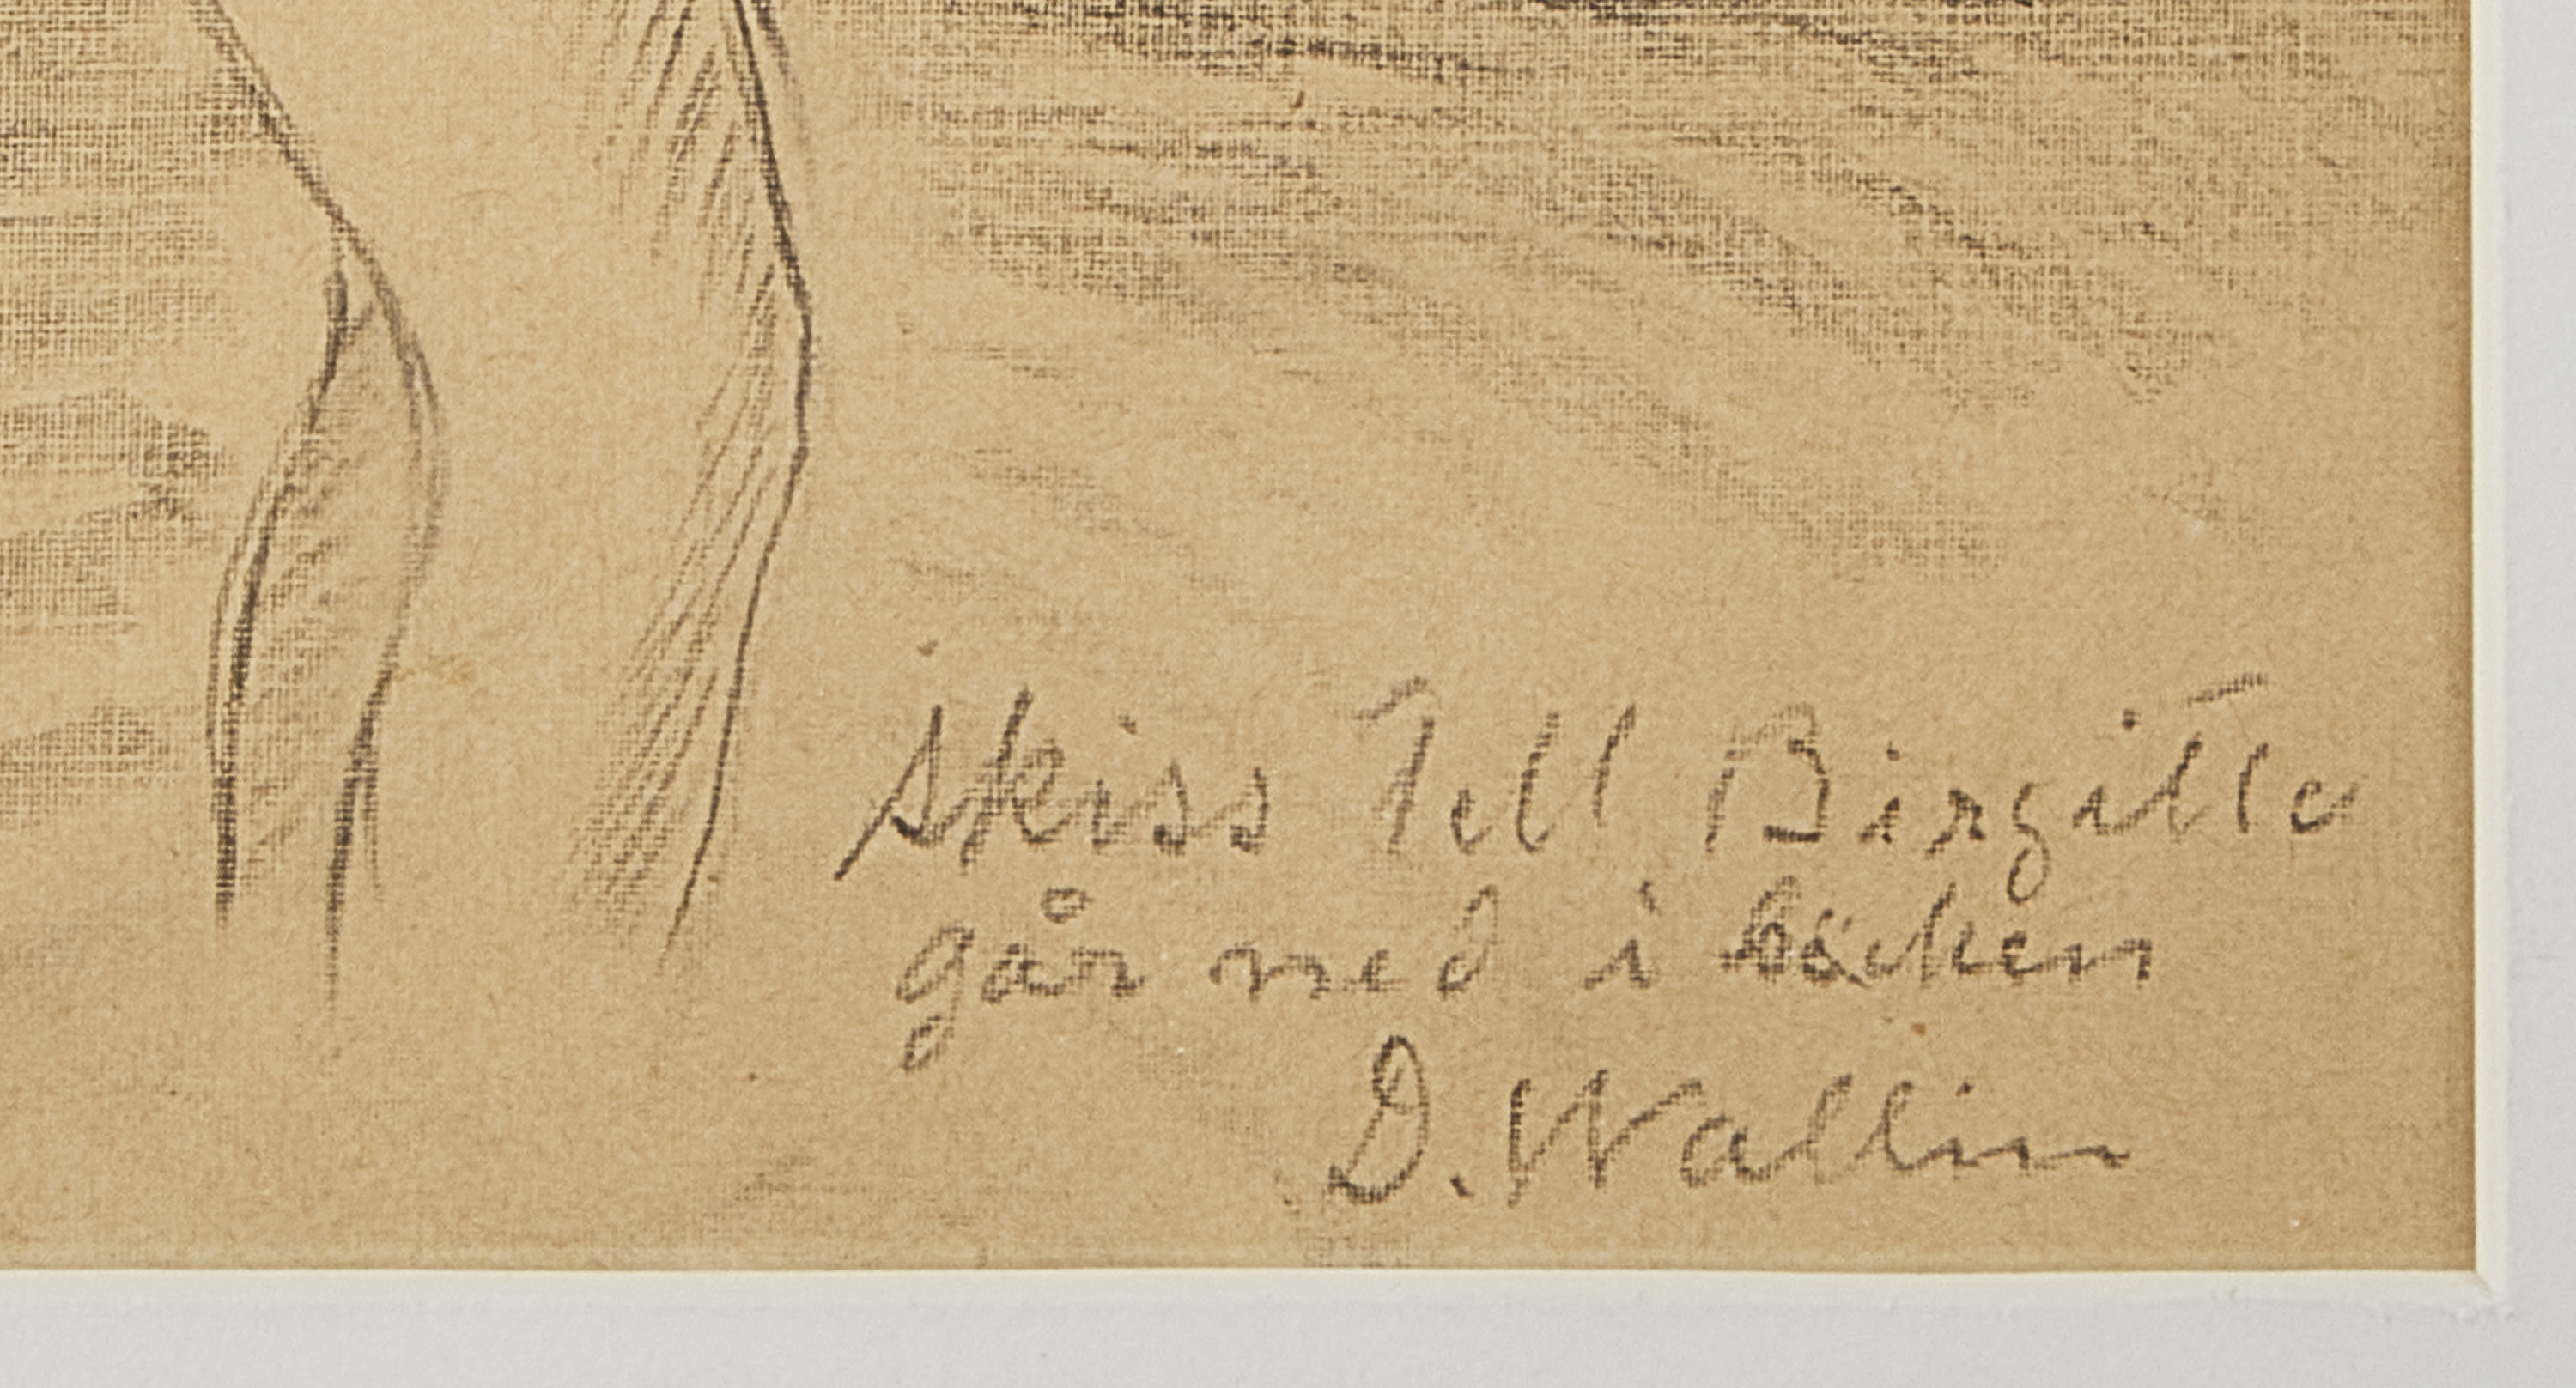 Skiss Till Birgitta
går ned i bäcken
D. Wallin